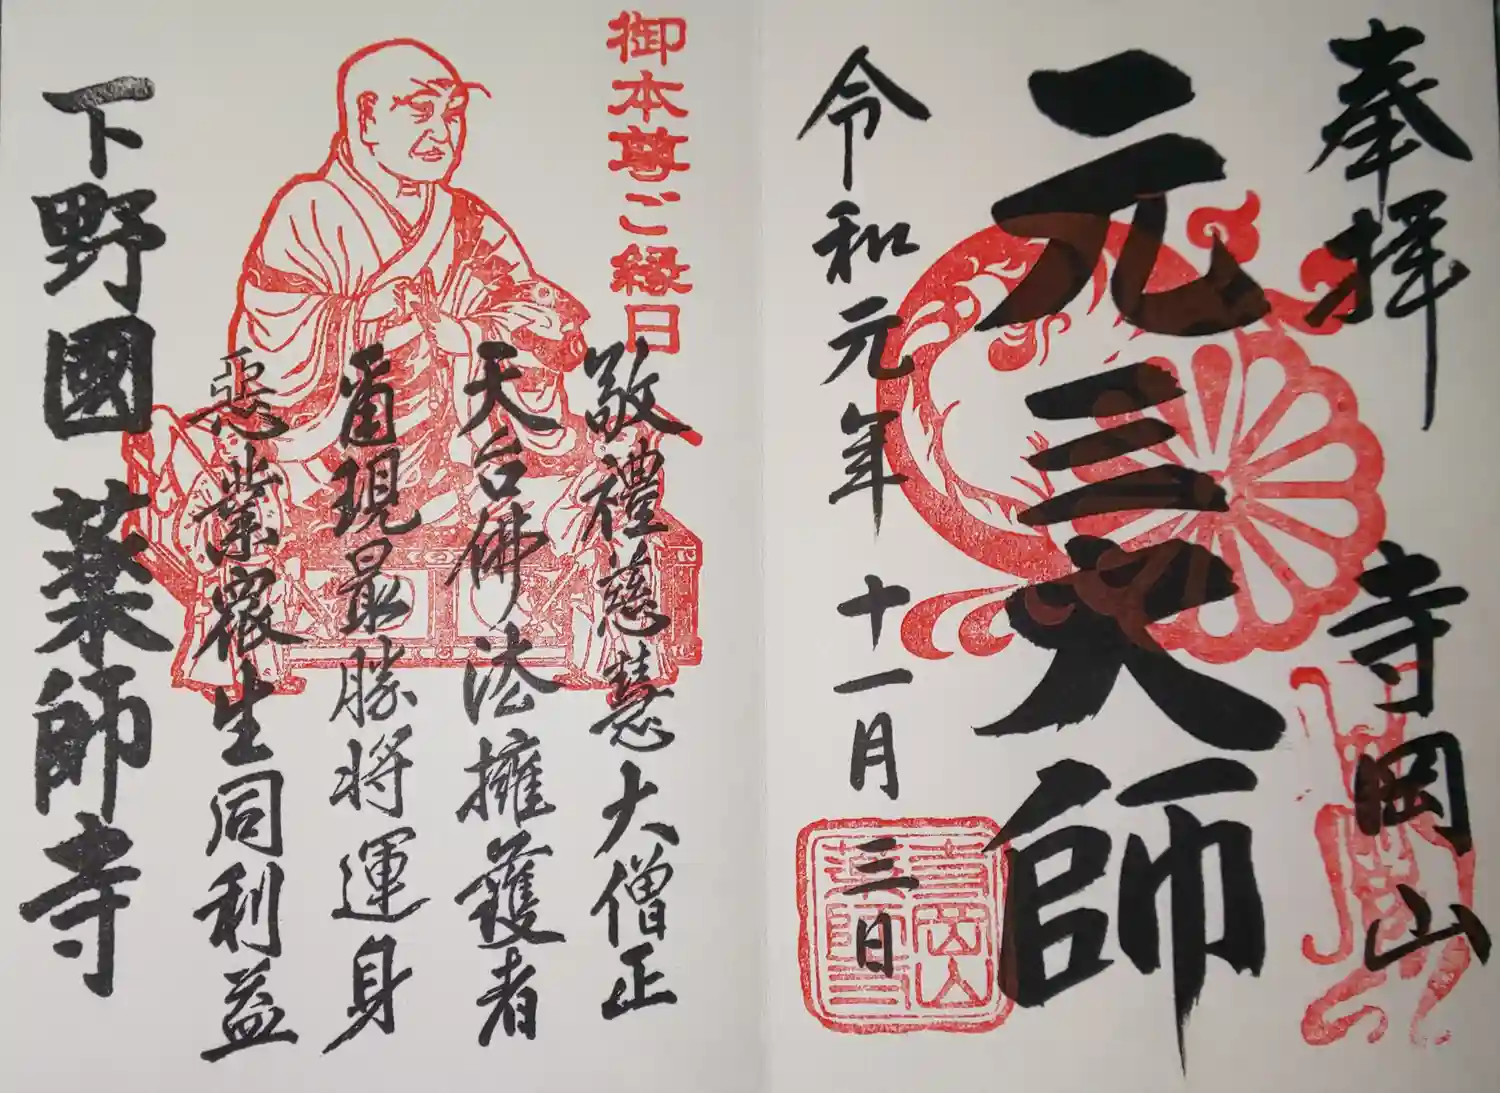 奉拝
寺岡山
元三大師
令和元年十一月三日
寺岡山
薬師寺
御本尊ご縁日
敬禮慈慧大僧正
天台佛法擁護者
畨現最勝将運身
惡業衆生同利益
下野國薬師寺